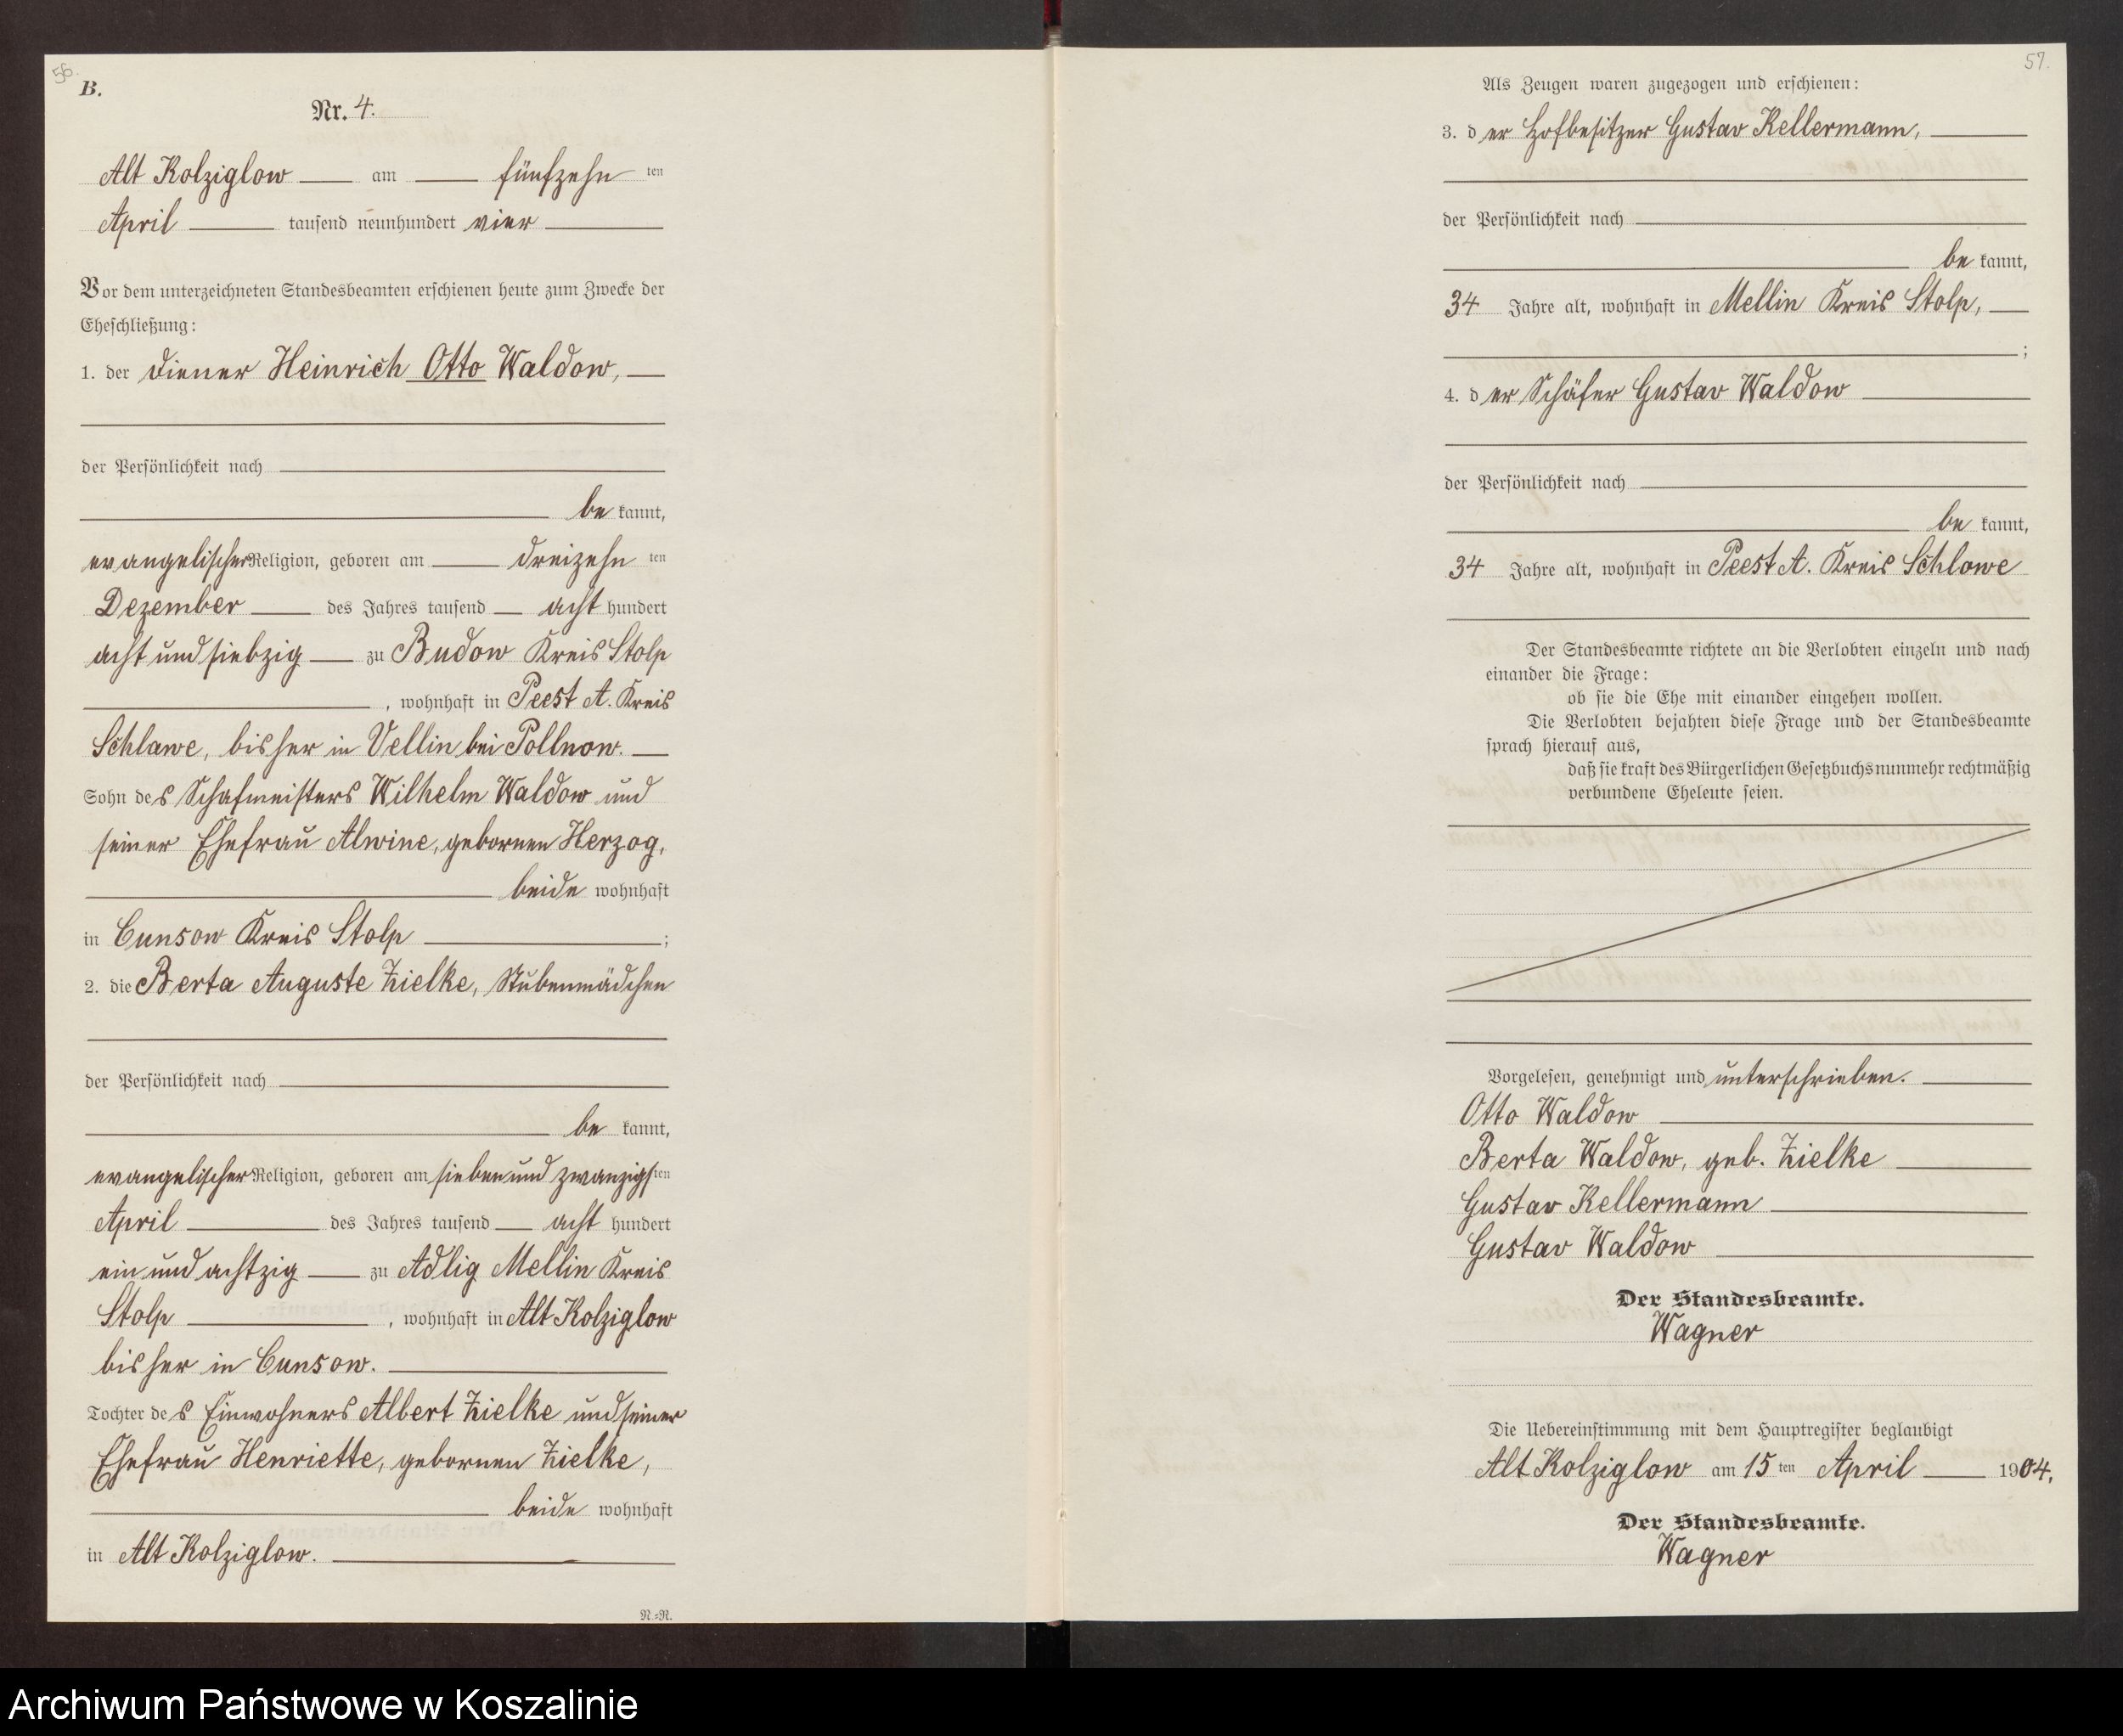 56.
B.
Nr. 4.
Alt Kolziglow am fünfzehn ten
April tausend neunhundert vier
Vor dem unterzeichneten Standesbeamten erschienen heute zum Zwecke der
Eheschließung:
1. der Diener Heinrich Otto Waldow,
der Persönlichkeit nach
be kannt,
evangelischer Religion, geboren am dreizehn ten
Dezember des Jahres tausend acht hundert
acht und siebzig zu Budow Kreis Stolp
, wohnhaft in Peest A. Kreis
Schlawe, bisher in Vellin bei Pollnow.
Sohn des Schafmeisters Wilhelm Waldow und
seiner Ehefrau Alwine, gebornen Herzog,
beide wohnhaft
in Cunsow Kreis Stolp ;
2. die Berta Auguste Zielke, Stubenmädchen
der Persönlichkeit nach
be kannt,
evangelischer Religion, geboren am sieben und zwanzigsten
April des Jahres tausend acht hundert
ein und achtzig zu Adlig Mellin Kreis
Stolp , wohnhaft in Alt Kolziglow
bisher in Cunsow.
Tochter des Einwohners Albert Zielke und seiner
Ehefrau Henriette, gebornen Zielke,
beide wohnhaft
in Alt Kolziglow.
N.=N.
57.
Als Zeugen waren zugezogen und erschienen:
3. der Hofbesitzer Gustav Kellermann,
der Persönlichkeit nach
be kannt,
34 Jahre alt, wohnhaft in Mellin Kreis Stolp,
;
4. der Schäfer Gustav Waldow
der Persönlichkeit nach
be kannt,
34 Jahre alt, wohnhaft in Peest A. Kreis Schlawe
Der Standesbeamte richtete an die Verlobten einzeln und nach
einander die Frage:
ob sie die Ehe mit einander eingehen wollen.
Die Verlobten bejahten diese Frage und der Standesbeamte
sprach hierauf aus,
daß sie kraft des Bürgerlichen Gesetzbuchs nunmehr rechtmäßig
verbundene Eheleute seien.
Vorgelesen, genehmigt und unterschrieben.
Otto Waldow
Berta Waldow, geb. Zielke
Gustav Kellermann
Gustav Waldow
Der Standesbeamte.
Wagner
Die Uebereinstimmung mit dem Hauptregister beglaubigt
Alt Kolziglow am 15 ten April 1904.
Der Standesbeamte.
Wagner
Archiwum Państwowe w Koszalinie